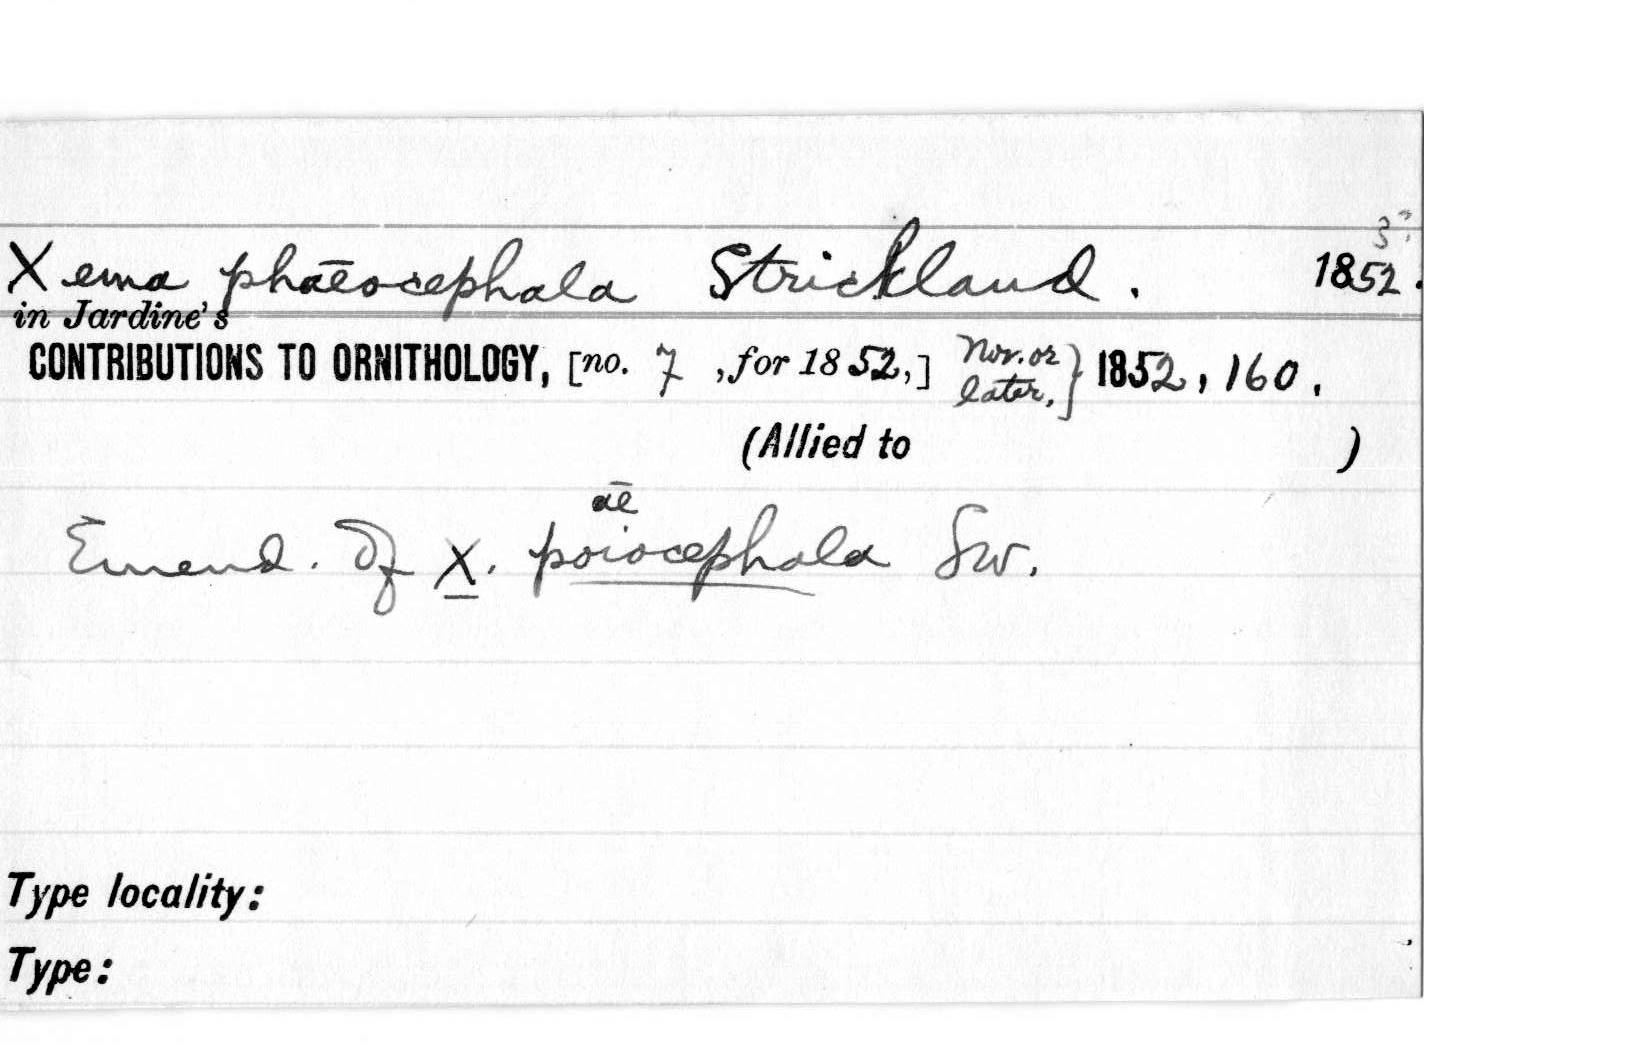 3?
Xema phaeocephala Strickland. 1852.
in Jardine's
CONTRIBUTIONS TO ORNITHOLOGY, [no. 7, for 1852,] Nov. or later,} 1852, 160.
(Allied to )
ae
Emend. Of X. poiocephala Sw.
Type locality:
Type: